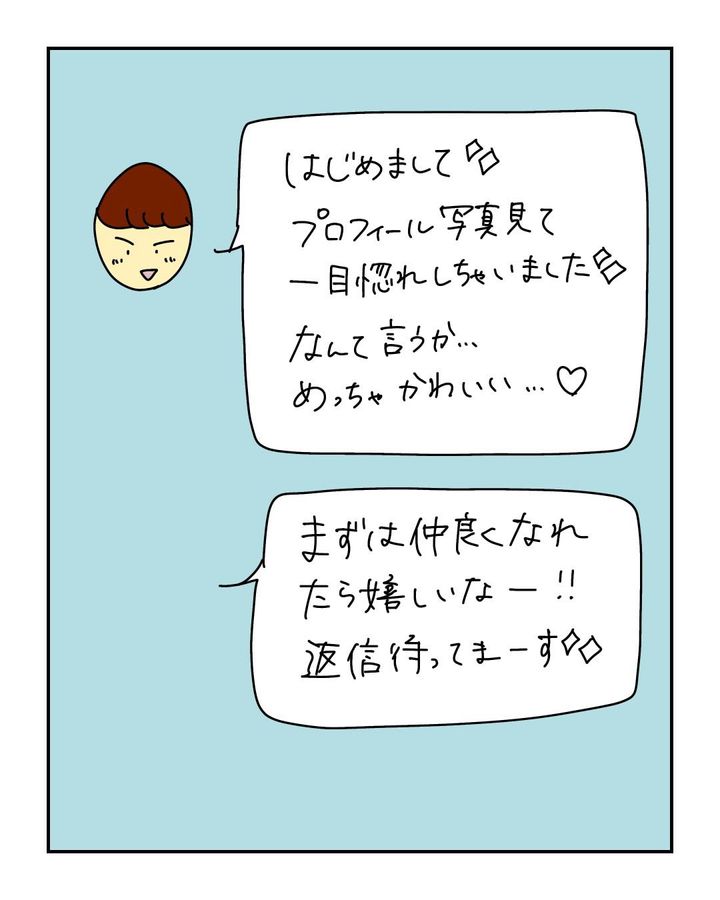 はじめまして
プロフィール写真見て
一目惚れしちゃいました
なんて言うか…
めっちゃかわいい…♡
まずは仲良くなれ
たら嬉しいなー!!
返信待ってまーす